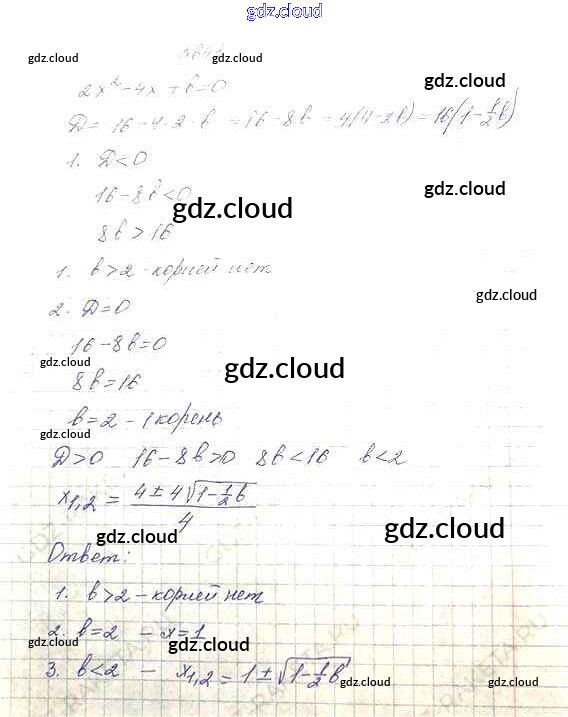 gdz.cloud
gdz.cloud gdz.cloud
gdz.cloud
2x² - 4x + b = 0
D = 16 - 4·2·b = 16 - 8b = 4(4-2b) = 16(1-½b)
1. D<0
16-8b<0
gdz.cloud
gdz.cloud
8b > 16
1. b>2 - корней нет
gdz.cloud
2. D=0
16-8b=0
gdz.cloud
gdz.cloud
8b=16
b=2 - 1 корень
gdz.cloud
D>0 16-8b>0 8b<16 b<2
x1,2 = (4 ± 4√(1-½b))/4
gdz.cloud
Ответ:
gdz.cloud
1. b>2 - корней нет
2. b=2 - x=1
gdz.cloud
gdz.cloud
3. b<2 - x1,2 = 1±√(1-½b)
gdz.cloud
gdz.cloud